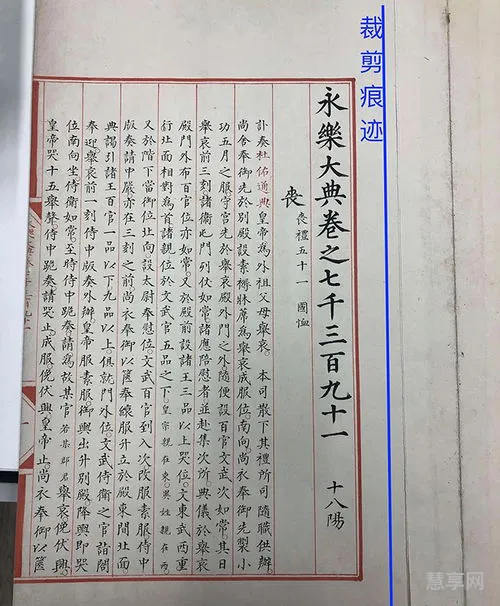 裁剪痕迹
永樂大典卷之七千三百九十一 十八陽
喪 喪禮五十一 國恤
訃奏杜佑通典皇帝為外祖父母舉哀。 本司散下其禮所司隨職供辦
尚舍奉御先於別殿設素褥牀席為舉哀成服位。南向尚衣奉御先製小
功五月之服守宮先於舉哀殿外門之外隨便設百官文武次如常。其日
舉哀前三刻。諸衛屯門列仗如常。諸應陪慰者並赴集次所典儀於舉哀
殿門外布百官位亦如常。又於殿前設諸王三品以上哭位。文東武西重
行北面相對為首諸親位於文武官五品之下。皇宗親在東。異姓親在西
又於階下當御位北向設太尉奉慰位文武百官到入次改服素服侍中
版奏請中嚴亦在三刻之前尚衣奉御以篋奉縗服升立於殿東間北面
典謁引諸王百官一品以下九品以上俱就門外位文武侍衛之官詣閤
奉迎舉哀前一刻侍中版奏外辦皇帝服素服御輿出升別殿降輿即哭
位南向坐侍衛如常。至時侍中跪奏請為故某官若某郡君舉哀俛伏興
皇帝哭十五舉聲侍中跪奏請哭止。成服俛伏興皇帝止。尚衣奉御以篋
慧享网